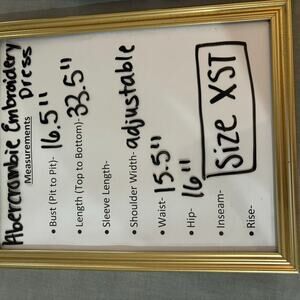 Abercrombie Embroidery
Dress
Measurements
• Bust (Pit to Pit)- 16.5"
• Length (Top to Bottom)- 33.5"
• Sleeve Length-
• Shoulder Width- adjustable
• Waist- 15.5"
• Hip- 16"
• Inseam-
• Rise-
Size XST